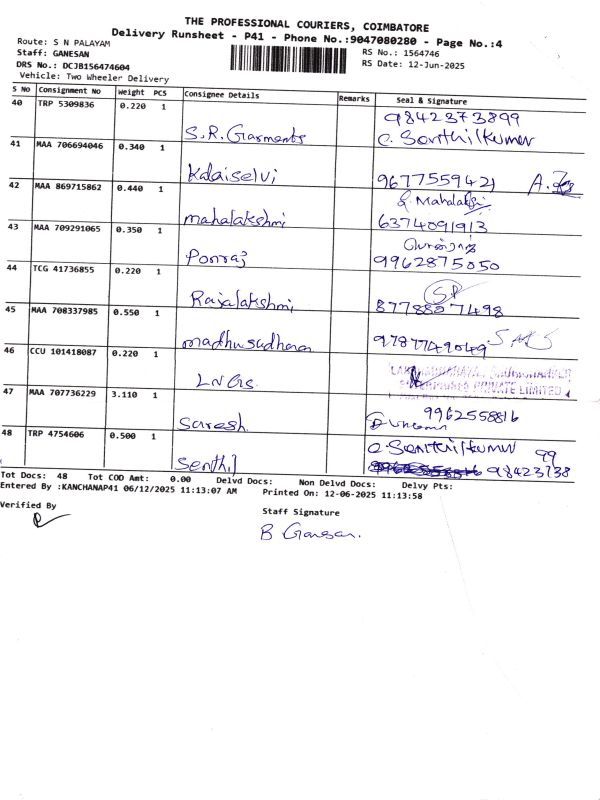 THE PROFESSIONAL COURIERS, COIMBATORE
Delivery Runsheet - P41 - Phone No.:9047080280 - Page No.:4
Route: S N PALAYAM
Staff: GANESAN
DRS No.: DCJB156474604
Vehicle: Two Wheeler Delivery
RS No.: 1564746
RS Date: 12-Jun-2025
S No Consignment No Weight PCS Consignee Details Remarks Seal & Signature
40 TRP 5309836 0.220 1 S.R. Garments 9842373899
C. Senthilkumar
41 MAA 706694046 0.340 1 Kalaiselvi 9677559421
42 MAA 869715862 0.440 1 mahalakshmi
6374091913
43 MAA 709291065 0.350 1 Ponraj
9962875050
44 TCG 41736855 0.220 1 Rajalakshmi
8778827498
45 MAA 708337985 0.550 1 madhusudhana 9787749049
46 CCU 101418087 0.220 1 LNGs.
PRIVATE LIMITED
47 MAA 707736229 3.110 1 Suresh 9962558816
48 TRP 4754606 0.500 1 Senthil C. Senthilkumar 99
98423738
Tot Docs: 48 Tot COD Amt: 0.00 Delvd Docs: Non Delvd Docs: Delvy Pts:
Entered By :KANCHANAP41 06/12/2025 11:13:07 AM Printed On: 12-06-2025 11:13:58
Verified By
Staff Signature
B Ganesan.